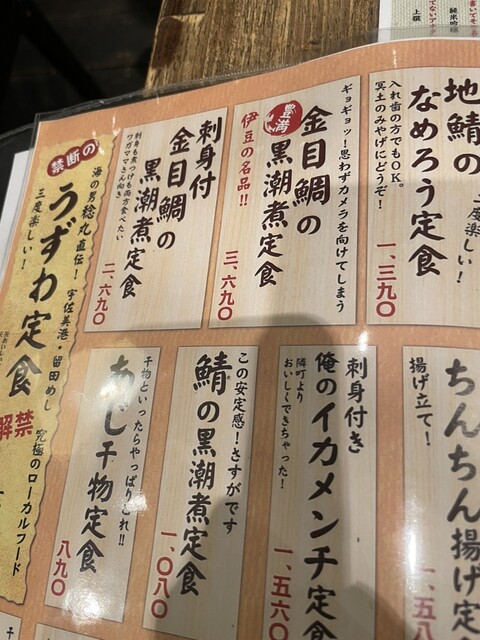 地鯖の
なめろう定食
三度楽しい！
入れ歯の方でもＯＫ。
冥土のみやげにどうぞ！
一、三九〇
ギョギョッ！思わずカメラを向けてしまう
金目鯛の
黒潮煮定食
豊満
伊豆の名品！！
三、六九〇
刺身付
金目鯛の
黒潮煮定食
刺身も煮つけも両方食べたい
ワガママさん向き
二、六九〇
禁断の
海の男稔丸直伝！
宇佐美港・留田めし
うずわ定食
三度楽しい！
解禁
究極のローカルフード
ちんちん揚げ定
揚げ立て！
刺身付き
俺のイカメンチ定食
隣町より
おいしくできちゃった！
一、五六〇
この安定感！さすがです
鯖の黒潮煮定食
一、〇八〇
干物といったらやっぱりこれ！！
あじ干物定食
八九〇
上撰
純米吟醸